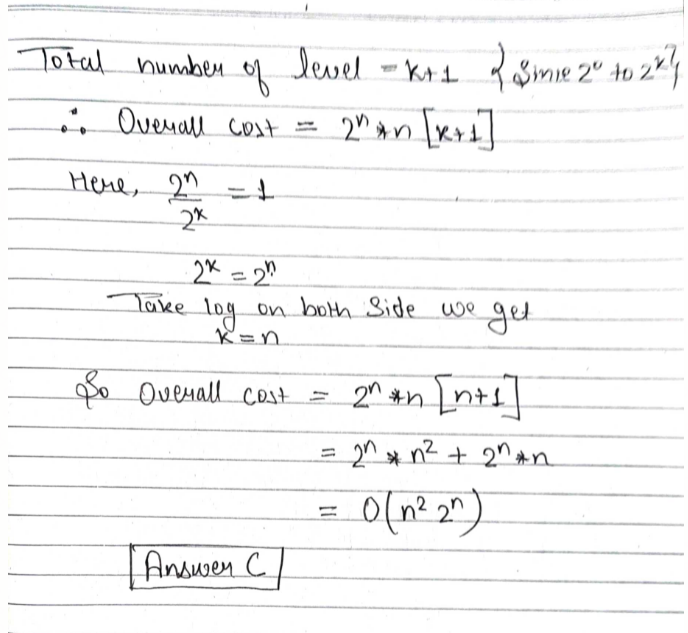 Total number of level = k+1 {Since 2⁰ to 2ᵏ}
∴ Overall cost = 2ⁿ * n [k+1]
Here, 2ⁿ/2ᵏ = 1
2ᵏ = 2ⁿ
Take log on both Side we get
k = n
So Overall cost = 2ⁿ * n [n+1]
= 2ⁿ * n² + 2ⁿ * n
= O(n² 2ⁿ)
Answer C